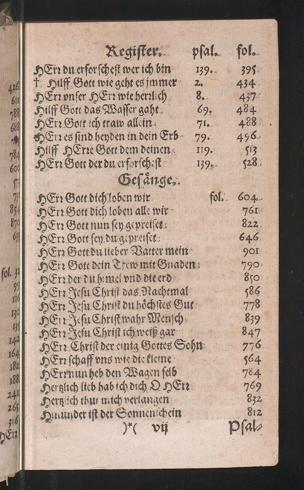 Register. psal. fol.
HErr du erforschest wer ich bin 139. 395
† Hilff Gott wie geht es jmmer 2. 434
HErr vnser HErr wie herrlich 8. 437
Hilff Gott das Wasser gaht 69. 484
HErr Gott ich traw allein 71. 488
HErr es sind heyden in dein Erb 79. 496
Hilff HErre Gott dem deinen 119. 513
HErr Gott der du erforschest 139. 528
Gesänge.
HErr Gott dich loben wir fol. 604
HErr Gott dich loben alle wir 761
HErr Gott nun sey gepreiset 822
HErr Gott sey du gepreiset 646
HErr Gott du lieber Vatter mein 901
HErr Gott dein Trew mit Gnaden 790
HErr der du himel vnd die erd 850
HErr Jesu Christ das Nachtmal 586
HErr Jesu Christ du höchstes Gut 778
HErr Jesu Christ wahr Mensch 839
HErr Jesu Christ ich weiß gar 847
HErr Christ der einig Gottes Sohn 776
HErr schaff vns wie die kleine 564
HErr nun heb den Wagen selb 784
Hertzlich lieb hab ich dich O HErr 769
Hertzlich thut mich verlangen 832
Hinunder ist der Sonnenschein 812
)*( vij Psal-